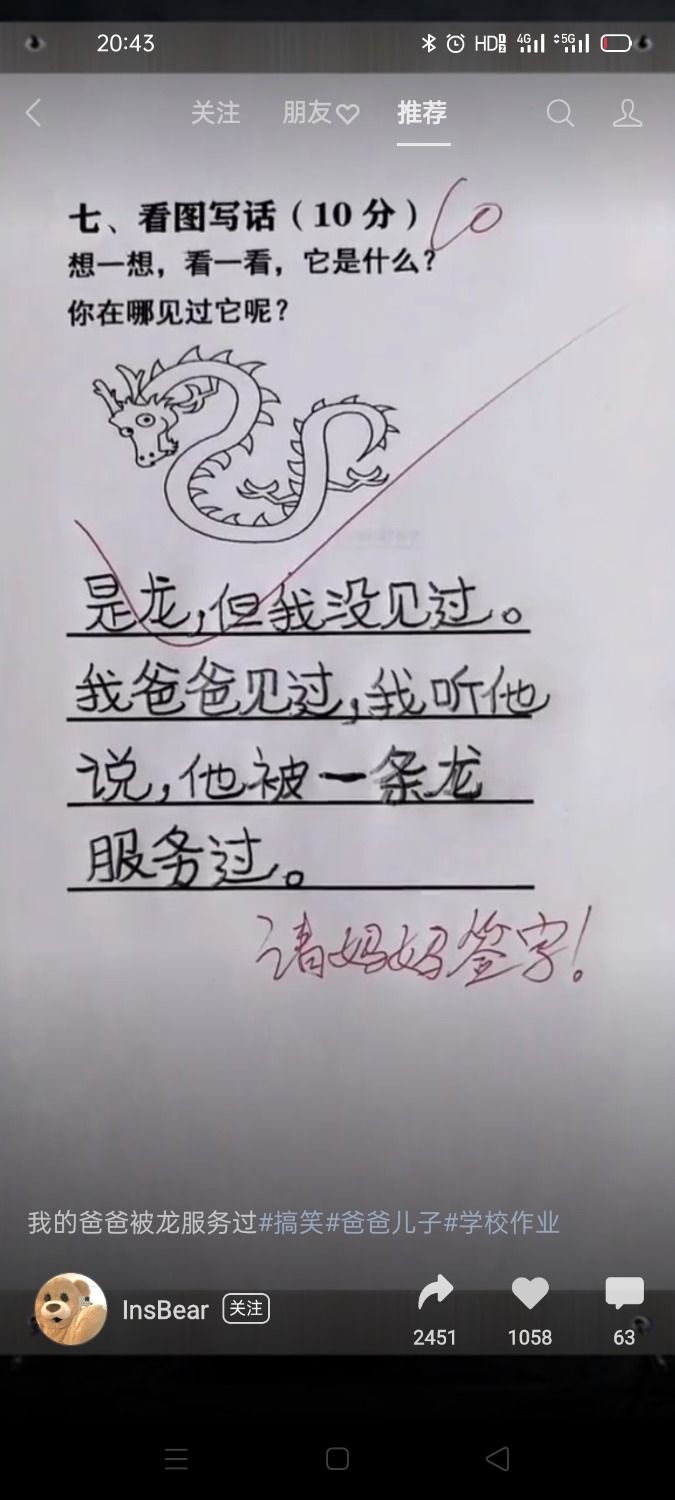 20:43
HD 4G 5G
关注 朋友 推荐
七、看图写话（10 分）
10
想一想，看一看，它是什么？
你在哪见过它呢？
是龙，但我没见过。
我爸爸见过，我听他
说，他被一条龙
服务过。
请妈妈签字！
我的爸爸被龙服务过#搞笑#爸爸儿子#学校作业
InsBear 关注
2451 1058 63